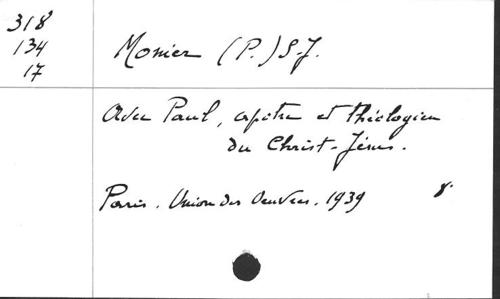 318
134
17
Monier (P.) S.J.
Avec Paul, apôtre et théologien
du Christ-Jésus.
Paris. Union des Oeuvres. 1939 8°